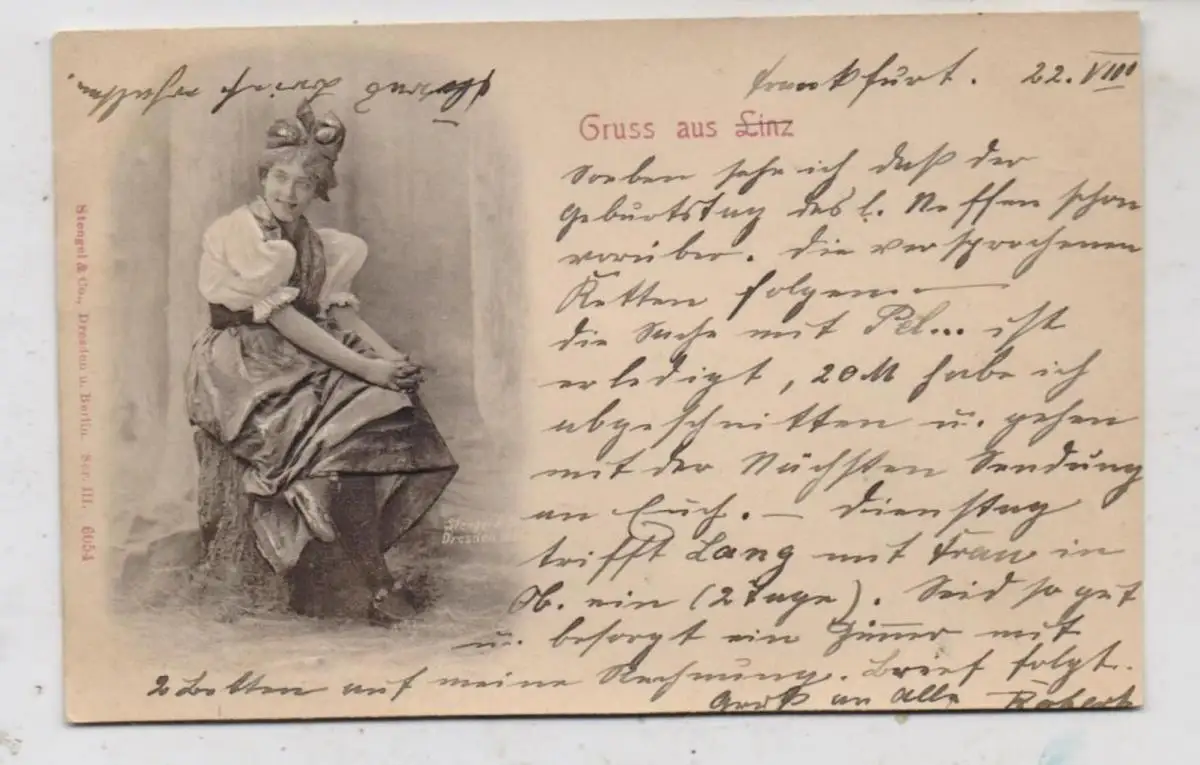 Frankfurt. 22. VIII
Gruss aus Linz
Soeben sehe ich daß der
Geburtstag des l. Neffen schon
vorüber. Die versprochenen
Ketten folgen —
die Sache mit Pel... ist
erledigt, 20 M habe ich
abgeschnitten u. gehen
mit der Nächsten Sendung
an Euch. — Dienstag
trifft Lang mit Frau in
ein (2 Tage). Seid so gut
u. besorgt ein Zimmer mit
2 Betten auf meine Rechnung. Brief folgt.
Gruß an Alle Robert
erhalten.
Stengel & Co., Dresden u. Berlin. Ser. III. 6054
Stengel
Dresden